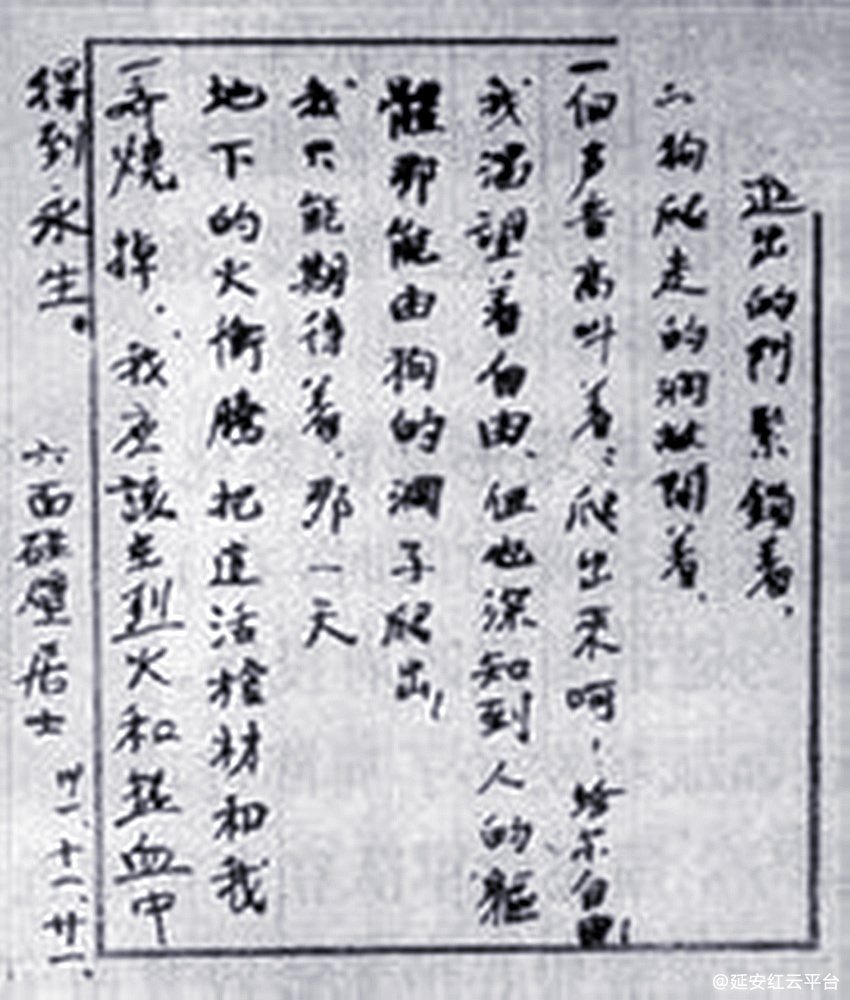 进出的門緊鎖着，
狗爬走的洞敞開着，
一個声音高叫着：爬出来呵，给尔自由！
我渴望着自由，但也深知到人的軀
體那能由狗的洞子爬出！
我只能期待着，那一天
地下的火衝騰，把這活棺材和我
一齊燒掉，我应該在烈火和熱血中
得到永生。
六面碰壁居士 卅一、十一、廿一、
@延安红云平台